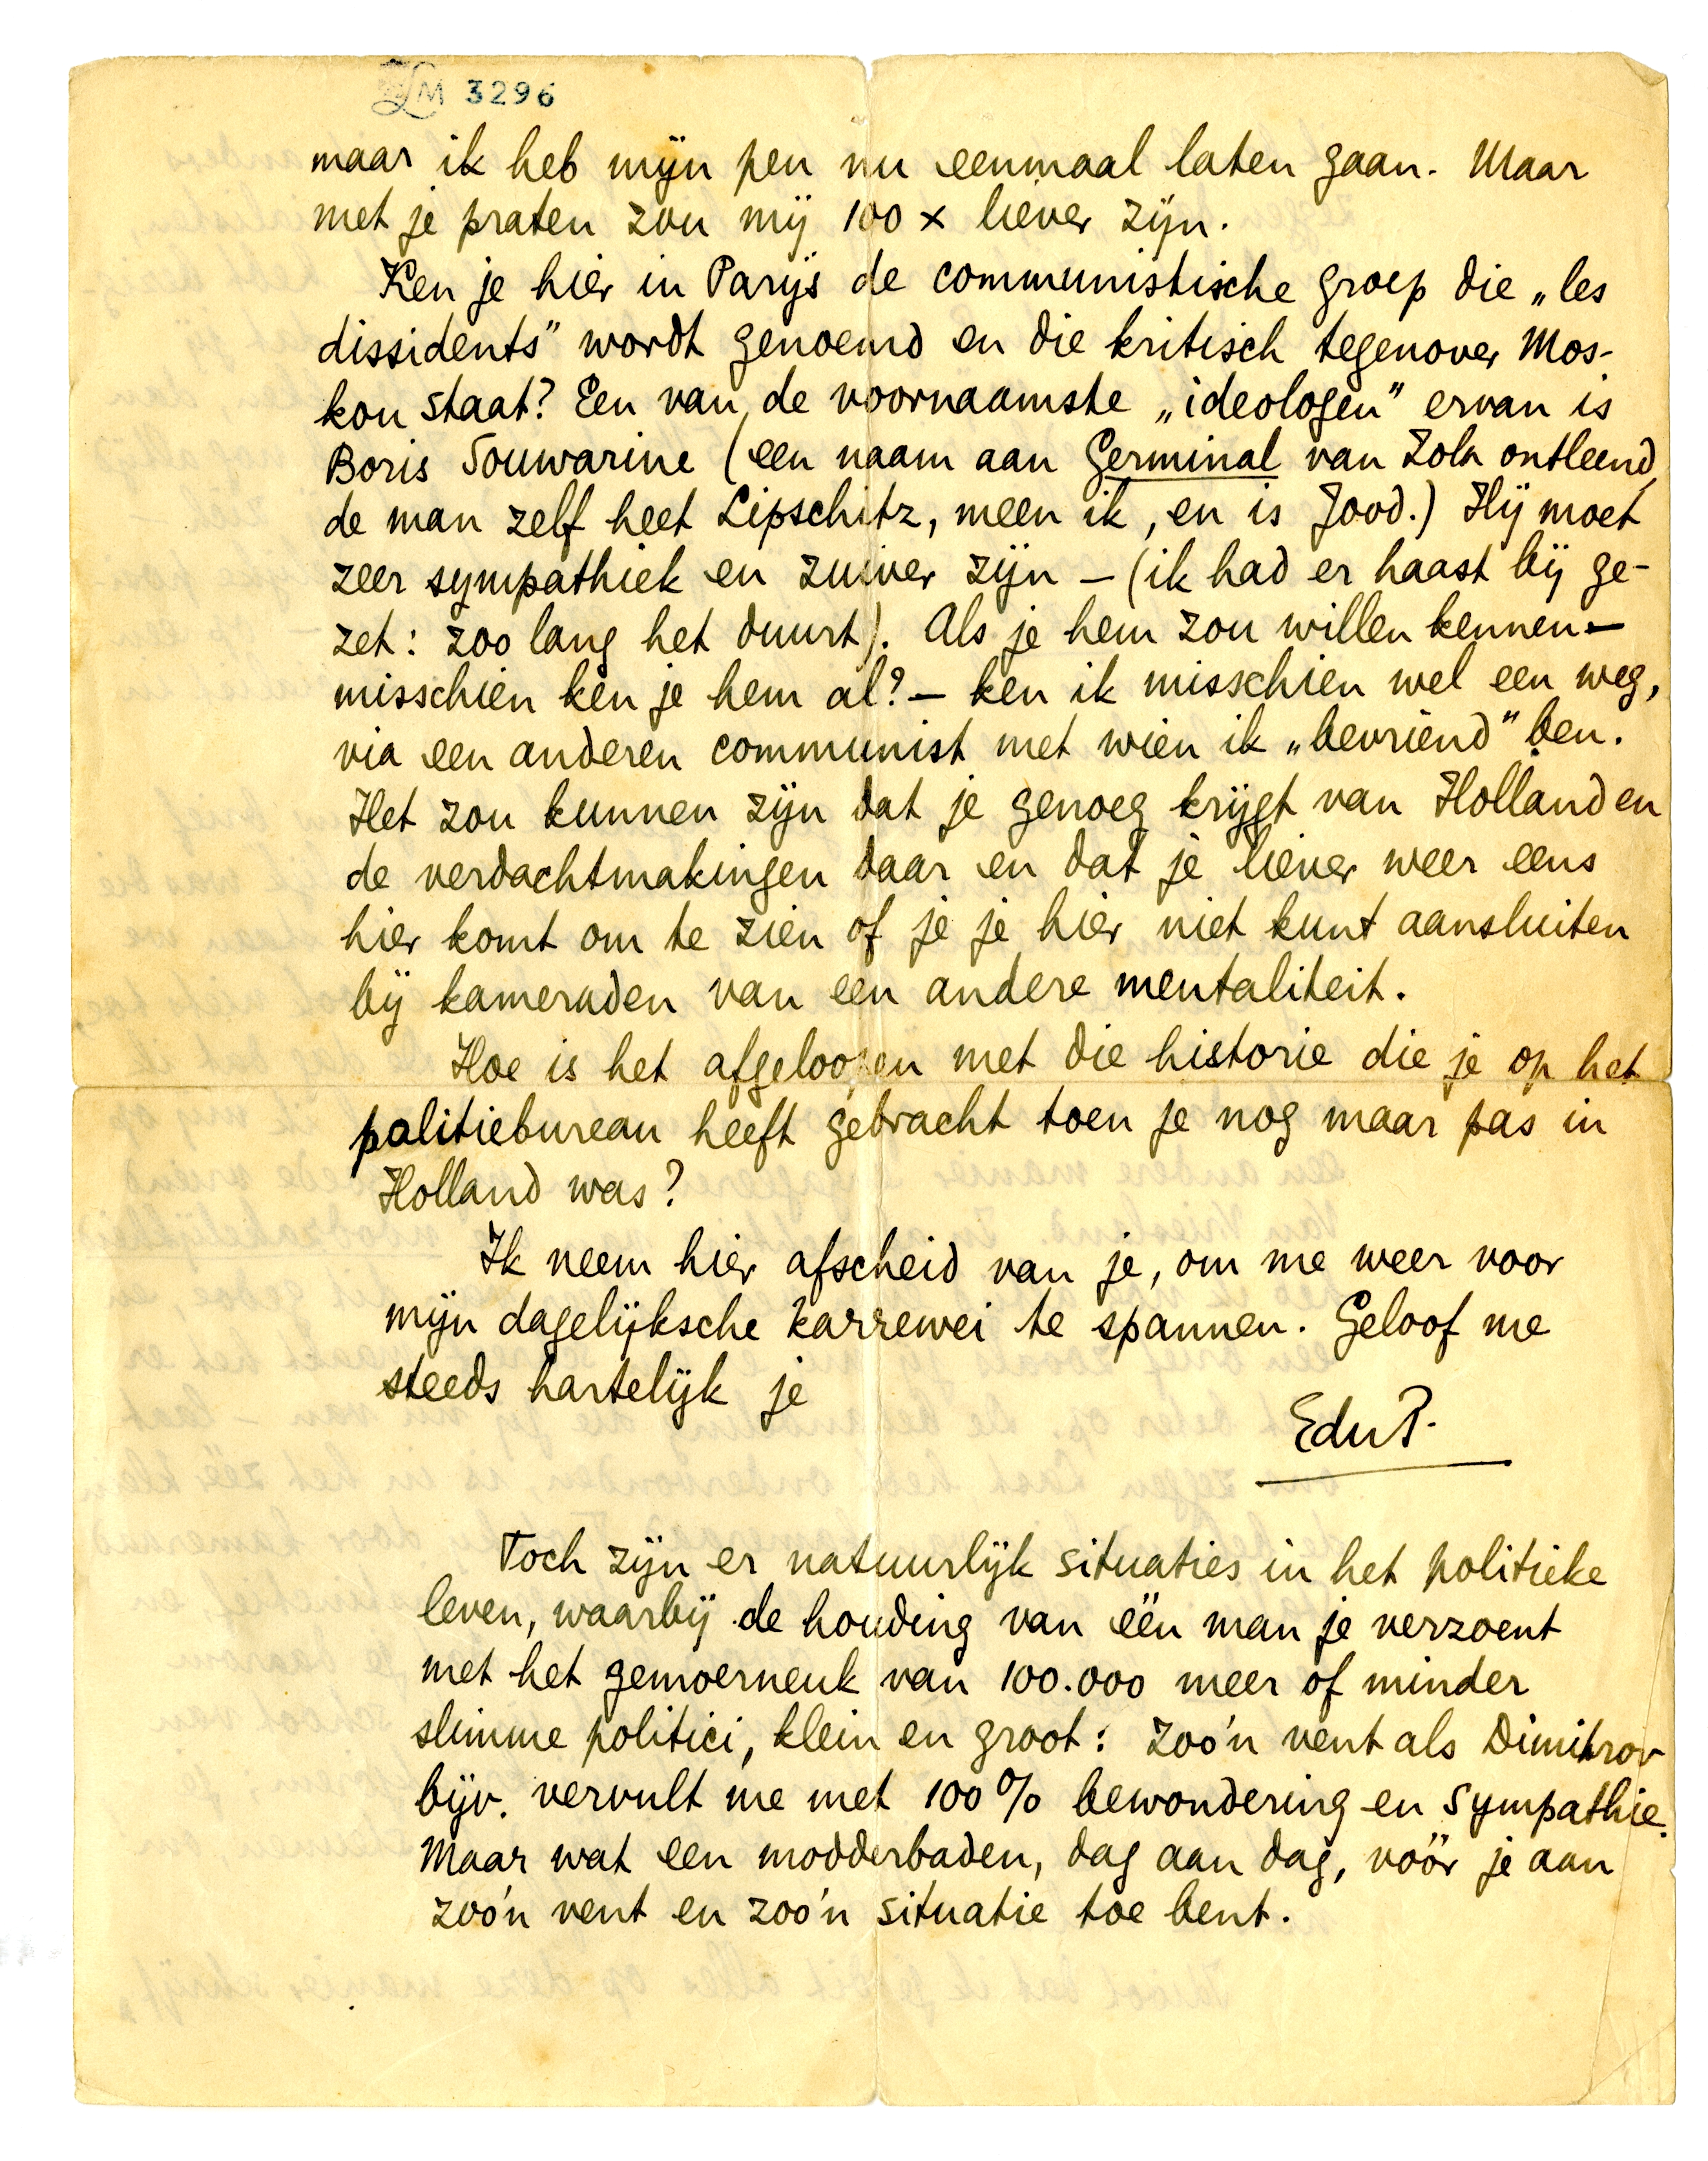 LM 3296
maar ik heb mijn pen nu eenmaal laten gaan. Maar
met je praten zou mij 100 x liever zijn.
Ken je hier in Parijs de communistische groep die „les
dissidents” wordt genoemd en die kritisch tegenover Mos-
kou staat? Een van de voornaamste „ideologen” ervan is
Boris Souwarine (een naam aan Germinal van Zola ontleend,
de man zelf heet Lipschitz, meen ik, en is Jood.) Hij moet
zeer sympathiek en zuiver zijn – (ik had er haast bij ge-
zet: zoo lang het duurt). Als je hem zou willen kennen –
misschien ken je hem al? – ken ik misschien wel een weg,
via een anderen communist met wien ik „bevriend” ben.
Het zou kunnen zijn dat je genoeg krijgt van Holland en
de verdachtmakingen daar en dat je liever weer eens
hier komt om te zien of je je hier niet kunt aansluiten
bij kameraden van een andere mentaliteit.
Hoe is het afgeloopen met die historie die je op het
politiebureau heeft gebracht toen je nog maar pas in
Holland was?
Ik neem hier afscheid van je, om me weer voor
mijn dagelijksche karrewei te spannen. Geloof me
steeds hartelijk je
EduP.
Toch zijn er natuurlijk situaties in het politieke
leven, waarbij de houding van één man je verzoent
met het gemoerneuk van 100.000 meer of minder
slimme politici, klein en groot: zoo'n vent als Dimitrov
bijv. vervult me met 100% bewondering en sympathie.
Maar wat een modderbaden, dag aan dag, vóór je aan
zoo'n vent en zoo'n situatie toe bent.